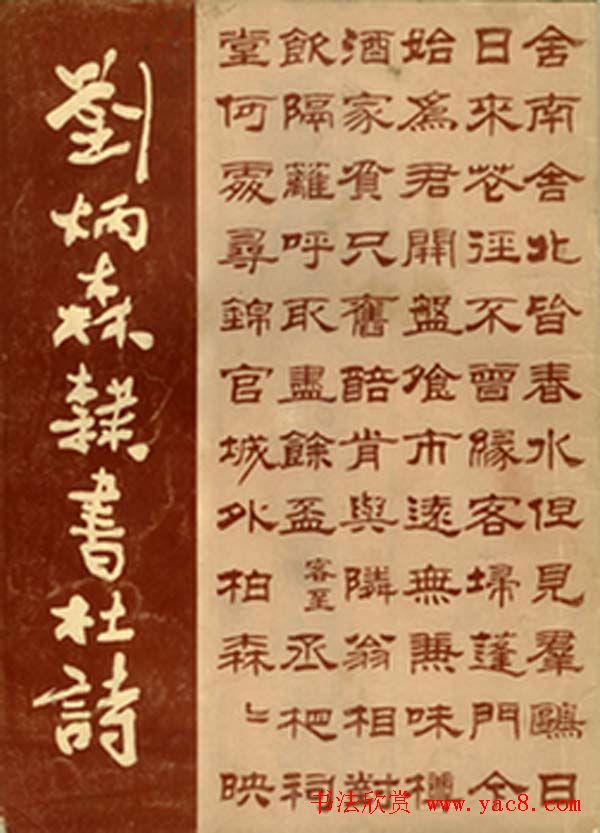 劉炳森隸書杜詩
舍南舍北皆春水但見羣鷗日
日來花徑不曾緣客埽蓬門今
始爲君開盤飧市遠無兼味樽
酒家貧只舊醅肯與隣翁相對
飲隔籬呼取盡餘盃客至丞相祠
堂何處尋錦官城外柏森〻映
书法欣赏 www.yac8.com